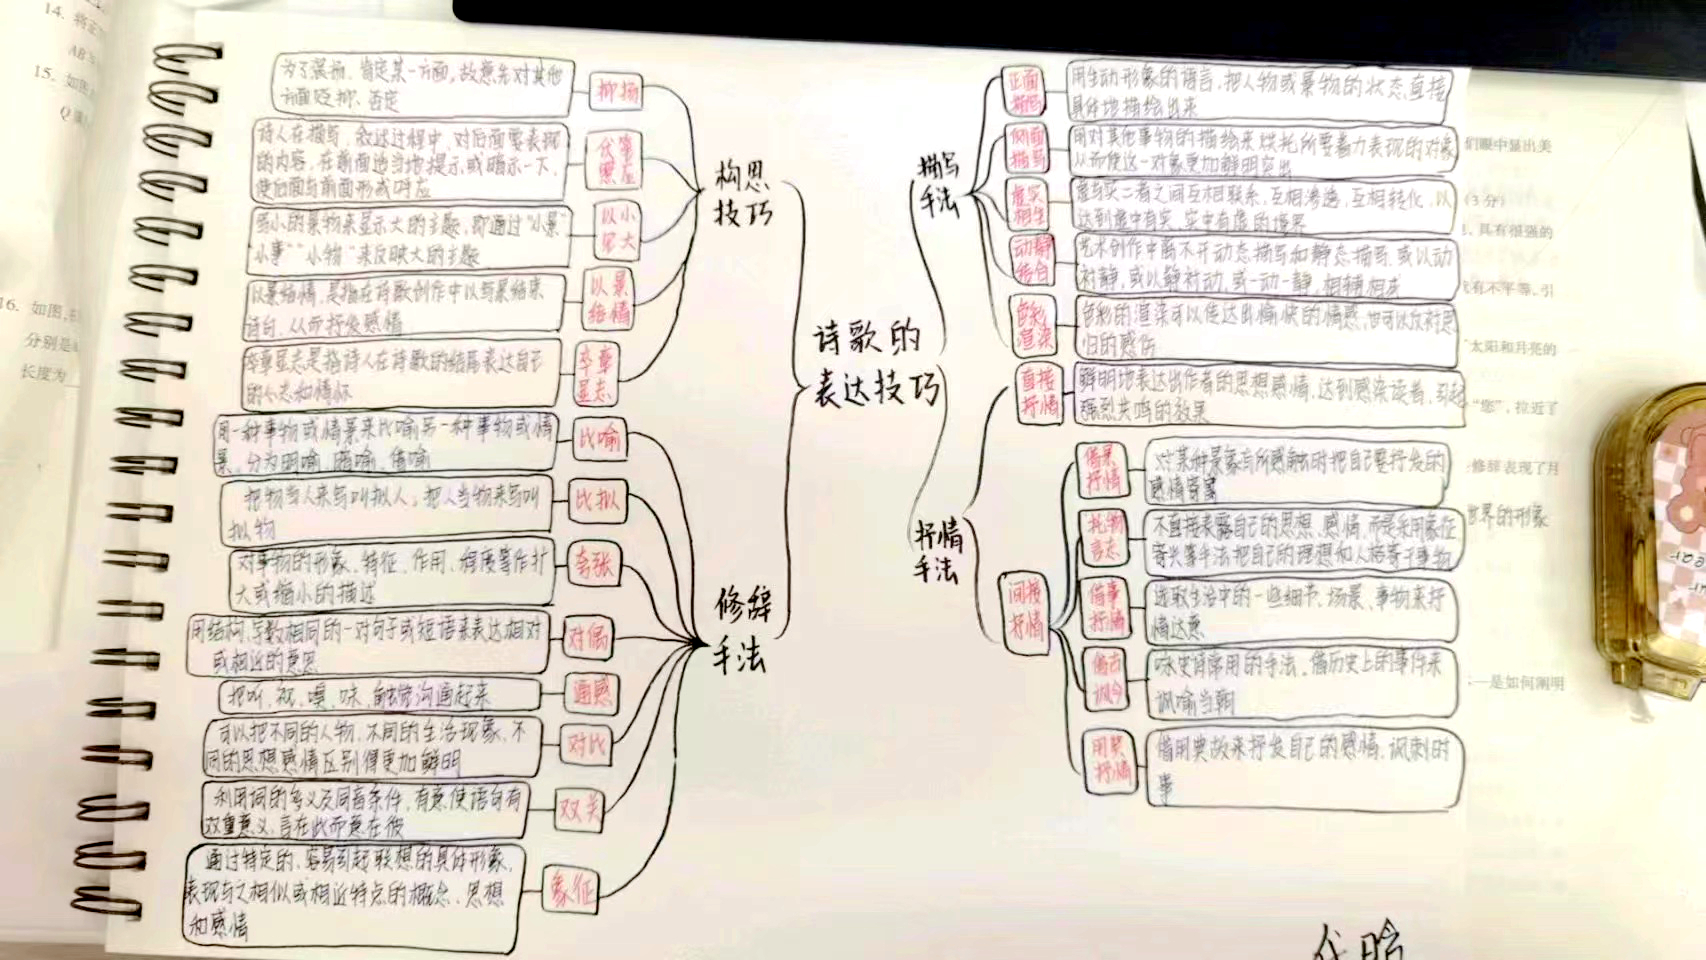 诗歌的
表达技巧
构思
技巧
抑扬
为了褒扬、肯定某一方面,故意先对其他
方面贬抑、否定
伏笔
照应
诗人在描写、叙述过程中,对后面要表现
的内容,在前面适当地提示或暗示一下,
使后面与前面形成呼应
以小
见大
小的景物来显示大的主题,即通过“小景”
“小事”“小物”来反映大的主题
以景
结情
以景结情,是指在诗歌创作中以写景结束
诗句,从而抒发感情
卒章
显志
卒章显志是指诗人在诗歌的结尾表达自己
的心志和情怀
修辞
手法
比喻
用一种事物或情景来比喻另一种事物或情
景,分为明喻、暗喻、借喻
比拟
把物当人来写叫拟人,把人当物来写叫
拟物
夸张
对事物的形象、特征、作用、程度等作扩
大或缩小的描述
对偶
用结构、字数相同的一对句子或短语来表达相对
或相近的意思
通感
把听、视、嗅、味、触觉沟通起来
对比
可以把不同的人物,不同的生活现象,不
同的思想感情区别得更加鲜明
双关
利用词的多义及同音条件,有意使语句有
双重意义,言在此而意在彼
象征
通过特定的、容易引起联想的具体形象,
表现与之相似或相近特点的概念、思想
和感情
描写
手法
正面
描写
用生动形象的语言,把人物或景物的状态直接
具体地描绘出来
侧面
描写
用对其他事物的描绘来烘托所要着力表现的对象
从而使这一对象更加鲜明突出
虚实
相生
虚与实二者之间互相联系,互相渗透,互相转化,以
达到虚中有实,实中有虚的境界
动静
结合
艺术创作中离不开动态描写和静态描写,或以动
衬静,或以静衬动,或一动一静,相辅相成
色彩
渲染
色彩的渲染可以传达出愉快的情感,也可以反衬思
归的感伤
抒情
手法
直接
抒情
鲜明地表达出作者的思想感情,达到感染读者,引起
强烈共鸣的效果
间接
抒情
借景
抒情
对某种景象有所感触时把自己要抒发的
感情寄寓
托物
言志
不直接表露自己的思想、感情,而是采用象征
等手法把自己的理想和人格寄于事物
借事
抒情
选取生活中的一些细节、场景、事物来抒
情达意
借古
讽今
咏史诗常用的手法。借历史上的事件来
讽喻当朝
用典
抒情
借用典故来抒发自己的感情,讽刺时
事
14.
15. 如图
16. 如图,
分别是
长度为
们眼中显出美
(3分)
具有很强的
有不平等,引
太阳和月亮的
“您”,拉近了
修辞表现了月
世界的形象
是如何阐明